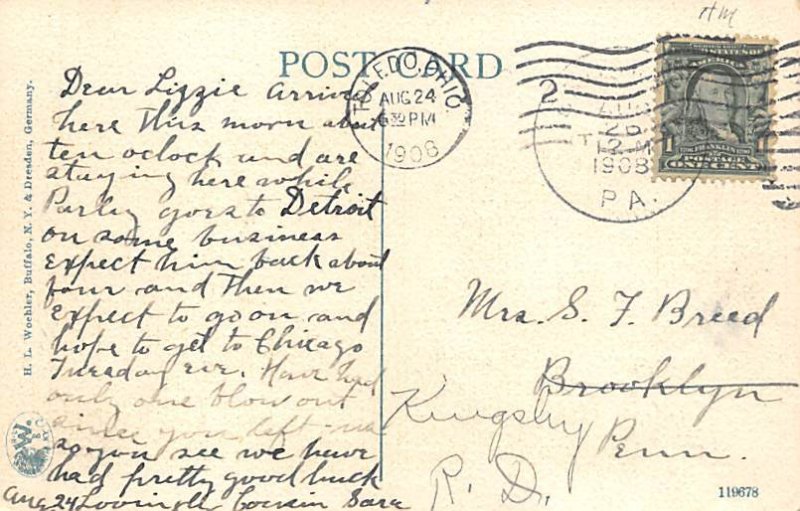 HM
POST CARD
Dear Lizzie arrived
here this morn about
ten oclock and are
staying here while
Parley goes to Detroit
on some business
expect him back about
four and then we
expect to go on and
hope to get to Chicago
Tuesday eve. Have had
only one blow out
since you left us
so you see we have
had pretty good luck
Aug 24 Cousin Sara
H. L. Woehler, Buffalo, N. Y. & Dresden, Germany.
W.
TOLEDO, OHIO.
AUG 24
630 PM
1908
2
AUG
26
12-M
1908
PA.
1
FRANKLIN
ONE CENT
Mrs. S. F. Breed
Brooklyn
Kingsley
Penn.
R. D.
119678